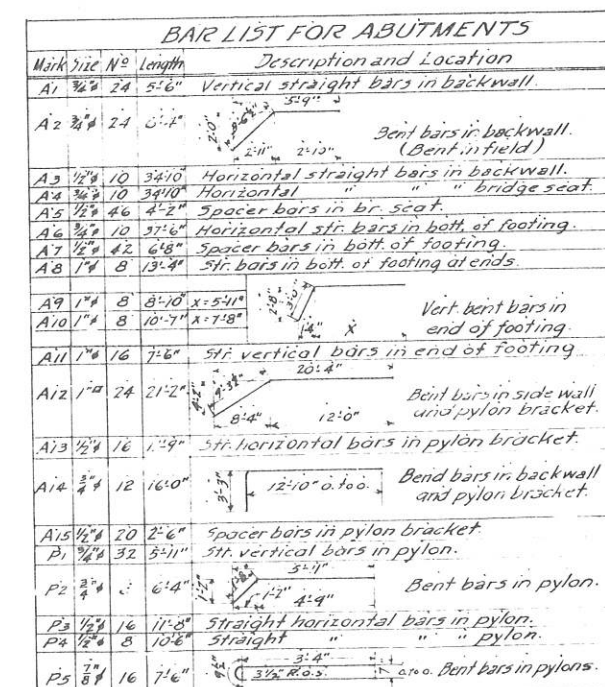 BAR LIST FOR ABUTMENTS
Mark Size Nº Length Description and Location
A1 3/4"ø 24 5'-6" Vertical straight bars in backwall.
5'-9"
A2 3/4"ø 24 2'-0" 2'-11" 2'-10" Bent bars in backwall.
(Bent in field)
A3 1/2"ø 10 34'10" Horizontal straight bars in backwall.
A4 3/4"ø 10 34'10" Horizontal " " " bridge seat.
A5 1/2"ø 46 4'-2" Spacer bars in br. seat.
A6 3/4"ø 10 37'-6" Horizontal str. bars in bott. of footing.
A7 1/2"ø 42 6'-8" Spacer bars in bott. of footing.
A8 1"ø 8 13'-4" Str. bars in bott. of footing at ends.
A9 1"ø 8 8'-10" X=5'-11" 2'-8" 3'-0" Vert. bent bars in
A10 1"ø 8 10'-7" X=7'-8" 1'-4" X end of footing.
A11 1"ø 16 7'-6" Str. vertical bars in end of footing
20'-4"
A12 1" 24 21'-2" 4'-2" 9'-3 1/2" Bent bars in side wall
8'-4" 12'-0" and pylon bracket.
A13 1/2"ø 16 Str. horizontal bars in pylon bracket.
A14 3/4"ø 12 16'-0" 3'-3" 12'-10" o. to o. Bend bars in backwall
and pylon bracket.
A15 1/2"ø 20 2'-6" Spacer bars in pylon bracket.
P1 3/4"ø 32 5'-11" Str. vertical bars in pylon.
5'-11"
P2 3/4"ø 6'-4" 1'-2" 1'-8" 1'-2" 4'-9" Bent bars in pylon.
P3 1/2"ø 16 11'-8" Straight horizontal bars in pylon.
P4 1/2"ø 8 10'-6" Straight " " " pylon.
3'-4"
P5 7/8"ø 16 7'-6" 3 1/2" R.O.S. 7" o. to o. Bent bars in pylons.